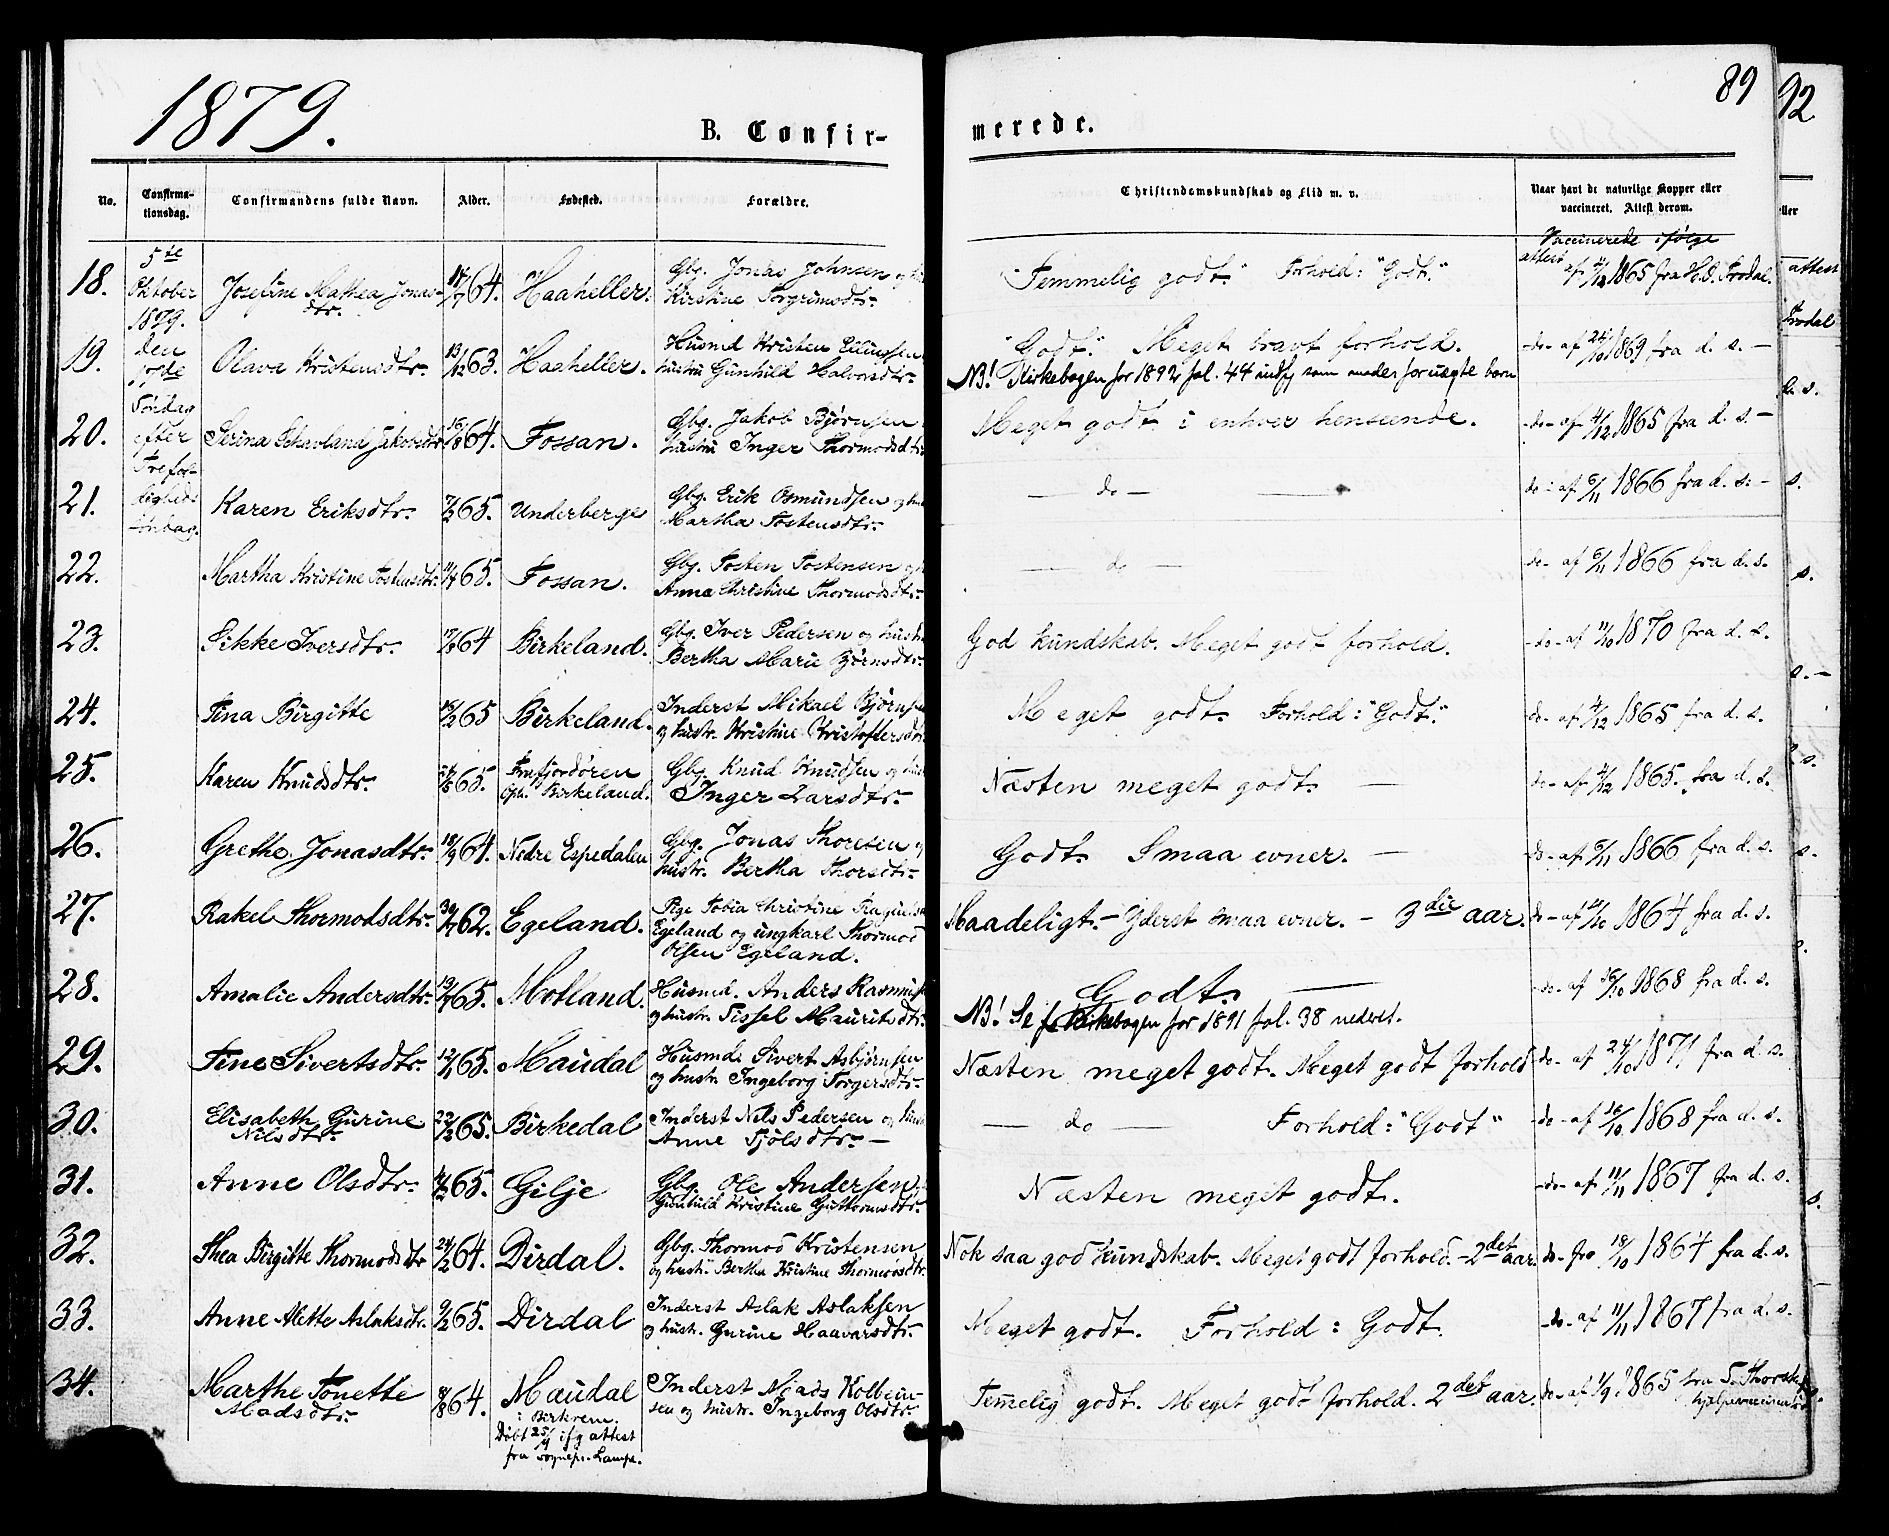 1879.
B. Confir-
merede.
89
92
No.
Confirma-
tionsdag.
Confirmandens fulde Navn.
Alder.
Fødested.
Forældre.
Christendomskundskab og Flid m. v.
Naar havt de naturlige Kopper eller
vaccineret. Attest derom.
5te
Oktober
1879.
den
Søndag
efter
Trefol-
digheds
18.
Josefine Mathea Jonas-
dtr.
64.
Haaheller.
Gbg. Jonas Johnsen og
Kirstine Torgrimsdtr.
"Temmelig godt." Forhold: "Godt."
Vaccinerede ifølge
attest
af 4/12 1865 fra H. O. Frodal.
19.
Olava Kristensdtr.
13/12 63.
Haaheller.
Husmd Kristen Ellingsen
hustru Gunhild Halvorsdtr.
"Godt." Meget bravt forhold.
NB! Kirkebogen for 1892 fol. 44 indfg som moder for uægte barn
-do- af 24/10 1869 fra d. s. -
20.
Serina Schavland Jakobsdtr.
16/8 64.
Fossan.
Gbg. Jakob Bjørnsen
hustru Inger Thormodsdtr.
Meget godt i enhver henseende.
-do- af 4/12 1865 fra d. s. -
21.
Karen Eriksdtr.
7/2 65.
Underberge
Gbg. Erik Osmundsen og
Martha Tostensdtr.
- do -
do - af 6/11 1866 fra d. s. -
22.
Martha Kristine Tostensdtr.
11/4 65.
Fossan.
Gbg. Tosten Tostensen og
Anna Christine Thormodsdtr.
- do -
do - af 6/11 1866 fra d. s.
23.
Sikke Iversdtr.
64
Birkeland.
Gbg. Iver Pedersen og hustru
Bertha Marie Bjørnsdtr.
God kundskab. Meget godt forhold.
-do- af 11/10 1870 fra d. s.
24.
Tina Birgitte
65
Birkeland.
Inderst Mikael Bjørnsen
og hustr. Kristine Kristoffersdtr.
Meget godt. Forhold: "Godt."
do- af 4/12 1865 fra d. s.
25.
Karen Knudsdtr.
65.
Frafjordøren
oph. Birkeland.
Gbg. Knud Knudsen og
Inger Larsdtr.
Næsten meget godt. -
do- af 4/12 1865. fra d. s.
26.
Grethe Jonasdtr.
18/9 64.
Nedre Espedalen
Gbg. Jonas Thoresen og
hustr. Bertha Thorsdtr.
Godt. Smaa evner. -
do- af 6/11 1866 fra d. s.
27.
Rakel Thormodsdtr.
62.
Egeland.
Pige Tobia Christine
Egeland og ungkarl Thormod
Olsen Egeland.
Maadeligt. - Yderst smaa evner. - 3die aar.
do - af 1864 fra d. s.
28.
Amalie Andersdtr.
65.
Motland.
Husmd. Anders Rasmus
og hustr. Sissel Mauritsdtr.
Godt. -
NB! Se f. Kirkebogen for 1891 fol. 38 nederst.
-do- af 16/10 1868 fra d. s.
29.
Tine Sivertsdtr.
65.
Maudal
Husmd. Sivert Asbjørnsen
og hustr. Ingeborg Torgersdtr.
Næsten meget godt. Meget godt forhold
do- af 24/10 1871 fra d. s.
30.
Elisabeth Gurine
Nilsdtr.
65.
Birkedal
Inderst Nils Pedersen og
Anne Tjølsdtr. -
- do - Forhold: "Godt"
-do- af 16/10 1868 fra d. s.
31.
Anne Olsdtr.
65.
Gilje
Gbg. Ole Andersen
Gunhild Kristine Guttormsdtr.
Næsten meget godt.
-do- af 11/11 1867 fra d. s.
32.
Thea Birgitte Thormodsdtr
64.
Dirdal.
Gbg. Thormod Kristensen
og hustr. Bertha Kristine Thormodsdtr.
Nok saa god kundskab. Meget godt forhold. - 2det aar.
do- fra 18/10 1864 fra d. s.
33.
Anne Alette Aslaksdtr.
65.
Dirdal
Inderst Aslak Aslaksen
og hustr. Gurine Haavarsdtr.
Meget godt. Forhold: Godt.
-do- af 11/11 1867 fra d. s.
34.
Marthe Tonette
Madsdtr.
64.
Maudal
i Birkrem.
Døbt 25/9 ifg attest
fra sognepr. Lampe.
Inderst Mads Kolbein-
sen og hustr. Ingeborg Olsdtr.
Temelig godt. Meget godt forhold. 2det aar.
do- af 1/9 1865 fra
hjælpevaccinatør